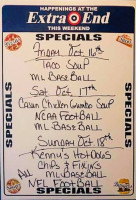 HAPPENINGS AT THE
Extra End
THIS WEEKEND
SPECIALS
SPECIALS
Friday Oct 16th
Taco Soup
ML Baseball
Sat Oct 17th
Cajun Chicken Gumbo Soup
NCAA Football
ML Baseball
Sunday Oct 18th
Kenny's Hotdogs
Chips & Fixins
All ML Baseball
NFL Football
SPECIALS
SPECIALS